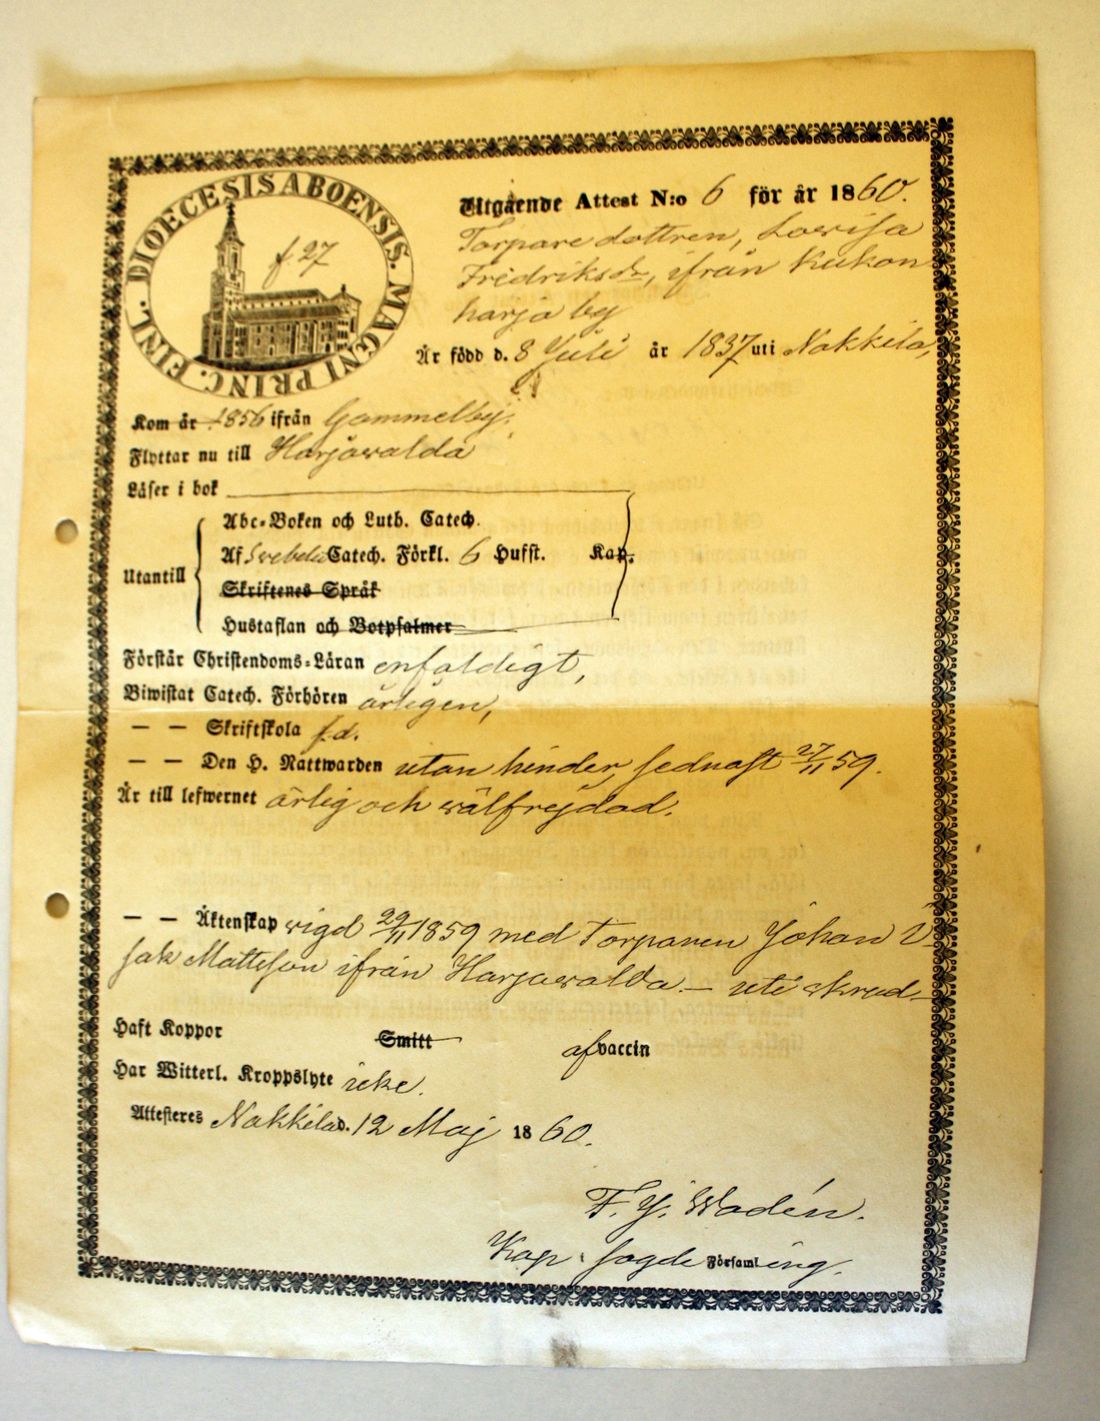 DIOECESIS ABOENSIS. MAGNI PRINC. FINL.
f. 27
Utgående Attest N:o 6 för år 1860.
Torpare dottren, Lovisa
Fredriksdr, ifrån Kukon
harja by
Är född d. 8 Juli år 1837 uti Nakkila,
Kom år 1856 ifrån Gammelby.
Flyttar nu till Harjawalda
Läser i bok
Utantill
Abc-Boken och Luth. Catech.
Af Svebelii Catech. Förkl. 6 Hufst. Kap.
Skriftenes Språk
Hustaflan och Botpsalmer
Förstår Christendoms-Läran enfaldigt,
Biwistat Catech. Förhören årligen,
— — Skriftskola f.d.
— — Den H. Nattwarden utan hinder, sednast 27/11 59.
Är till lefwernet ärlig och wälfrejdad.
— — Äktenskap vigd 29/11 1859 med Torparen Johan I-
sak Mattsson ifrån Harjawalda. — uti skrud —
Haft Koppor Smitt af vaccin
Har Witterl. Kroppslyte icke.
Attesteres Nakkila d. 12 Maj 1860.
F. J. Wadén.
Kap. i sagde Församling.